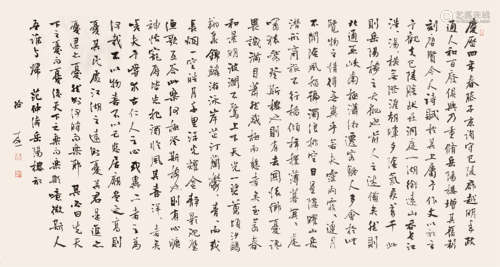 慶歷四年春滕子京謫守巴陵郡越明年政
通人和百廢俱興乃重修岳陽樓增其舊制
刻唐賢今人詩賦於其上屬予作文以記之
予觀夫巴陵勝狀在洞庭一湖銜遠山吞長江
浩浩湯湯橫無際涯朝暉夕陰氣象萬千此
則岳陽樓之大觀也前人之述備矣然則
北通巫峽南極瀟湘遷客騷人多會於此
覽物之情得無異乎若夫霪雨霏霏連月
不開陰風怒號濁浪排空日星隱曜山岳
潛形商旅不行檣傾楫摧薄暮冥冥虎
嘯猿啼登斯樓也則有去國懷鄉憂讒
畏譏滿目蕭然感極而悲者矣至若春
和景明波瀾不驚上下天光一碧萬頃沙鷗
翔集錦鱗游泳岸芷汀蘭郁郁青青而或
長煙一空皓月千里浮光躍金靜影沉璧
漁歌互答此樂何極登斯樓也則有心曠
神怡寵辱偕忘把酒臨風其喜洋洋者矣
嗟夫予嘗求古仁人之心或異二者之為
何哉不以物喜不以己悲居廟堂之高則
憂其民處江湖之遠則憂其君是進亦
憂退亦憂然則何時而樂耶其必曰先天
下之憂而憂後天下之樂而樂歟噫微斯人
吾誰與歸 范仲淹岳陽樓記